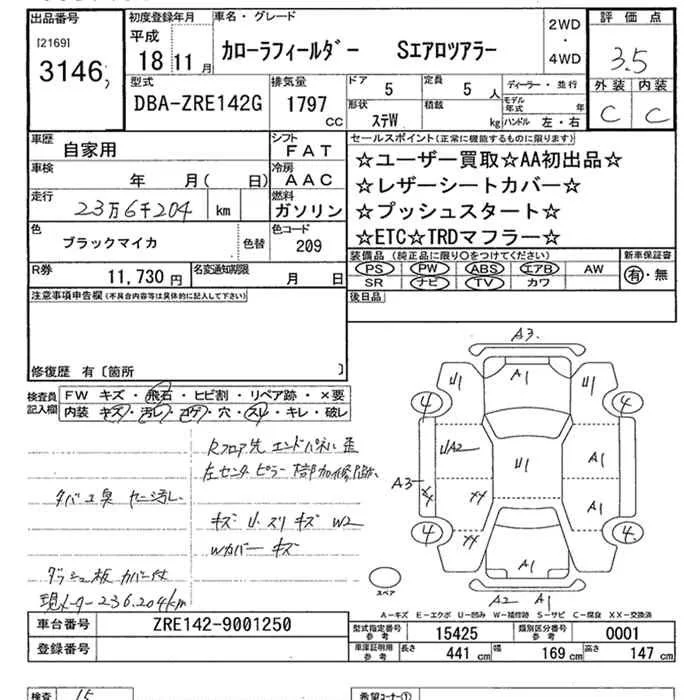 出品番号
[2169]
3146
初度登録年月
平成
18 11月
車名・グレード
カローラフィールダー Sエアロツアラー
2WD
・
4WD
評価点
3.5
外装 内装
C C
型式
DBA-ZRE142G
排気量
1797
CC
ドア
5
形状
ステW
定員
5 人
積載
kg
ディーラー・並行
モデル年式 年
ハンドル 左・右
車歴
自家用
シフト
FAT
車検
年 月( 日)
冷房
AAC
走行
23万6千204 km
燃料
ガソリン
色
ブラックマイカ
色替
色コード
209
R券
11,730 円
名変通知期限
月 日
セールスポイント(正常に機能するものに限ります)
☆ユーザー買取☆AA初出品☆
☆レザーシートカバー☆
☆プッシュスタート☆
☆ETC☆TRDマフラー☆
装備品 (純正品に限り○をつけてください)
PS PW ABS エアB AW
SR ナビ TV カワ
新車保証書
有・無
後日品
注意事項申告欄(不具合内容等は具体的に記入して下さい)
修復歴 有〔箇所 〕
検査員記入欄
FW キズ・飛石・ヒビ割・リペア跡・×要
内装 キズ・汚レ・コゲ・穴・スレ・キレ・破レ
Rフロア先 エンドパネル歪
左センターピラー 下部加修跡
タバコ臭 ヤニ汚レ
キズ U スリキズ W2
Wカバー キズ
ダッシュ板 カバー付
現メーター236.204km
A3
U1 A1 U1
4 4
UA2 U1 A1
A3
サ サ A1
サ
4 4
A1
A2 A1
スペア
A-キズ E-エクボ U-凹み W-補修跡 S-サビ C-腐食 XX-交換済
車台番号
ZRE142-9001250
登録番号
型式指定番号 参考
15425
類別区分番号 参考
0001
車庫証明用 参考
長さ 441 cm 幅 169 cm 高さ 147 cm
検査 15
希望コーナー①